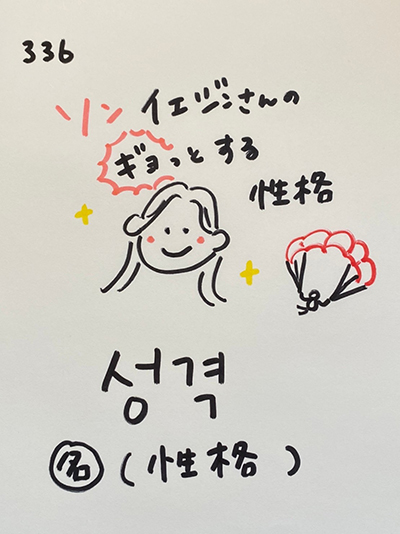 336
ソン イェジンさんの
ギョっとする
性格
성격
名 (性格)